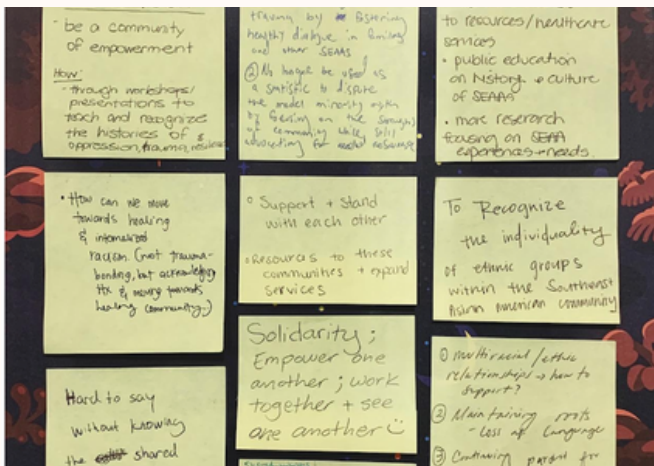 - be a community
of empowerment
How:
- through workshops/
presentations to
teach and recognize
the histories of &
oppression, trauma,
trauma by fostering
healthy dialogue in families
and other SEAAS
② No longer be used as
a statistic to dispute
the model minority myth
by focusing on the strengths
of community while still
advocating for resources
to resources/healthcare
services
• public education
on history + culture
of SEAAs
• more research
focusing on SEAA
experiences + needs.
• How can we move
towards healing
& internalized
racism (not trauma-
bonding, but acknowledging
Hx & moving towards
healing community.)
• Support + Stand
with each other
• Resources to these
communities + expand
services
To Recognize
the individuality
of ethnic groups
within the Southeast
Asian American community
Solidarity;
Empower one
another; work
together + see
one another
Hard to say
without knowing
the shared
① multiracial/ethnic
relationships → how to
support?
② Maintaining roots
- Loss of Language
③ Continuing for